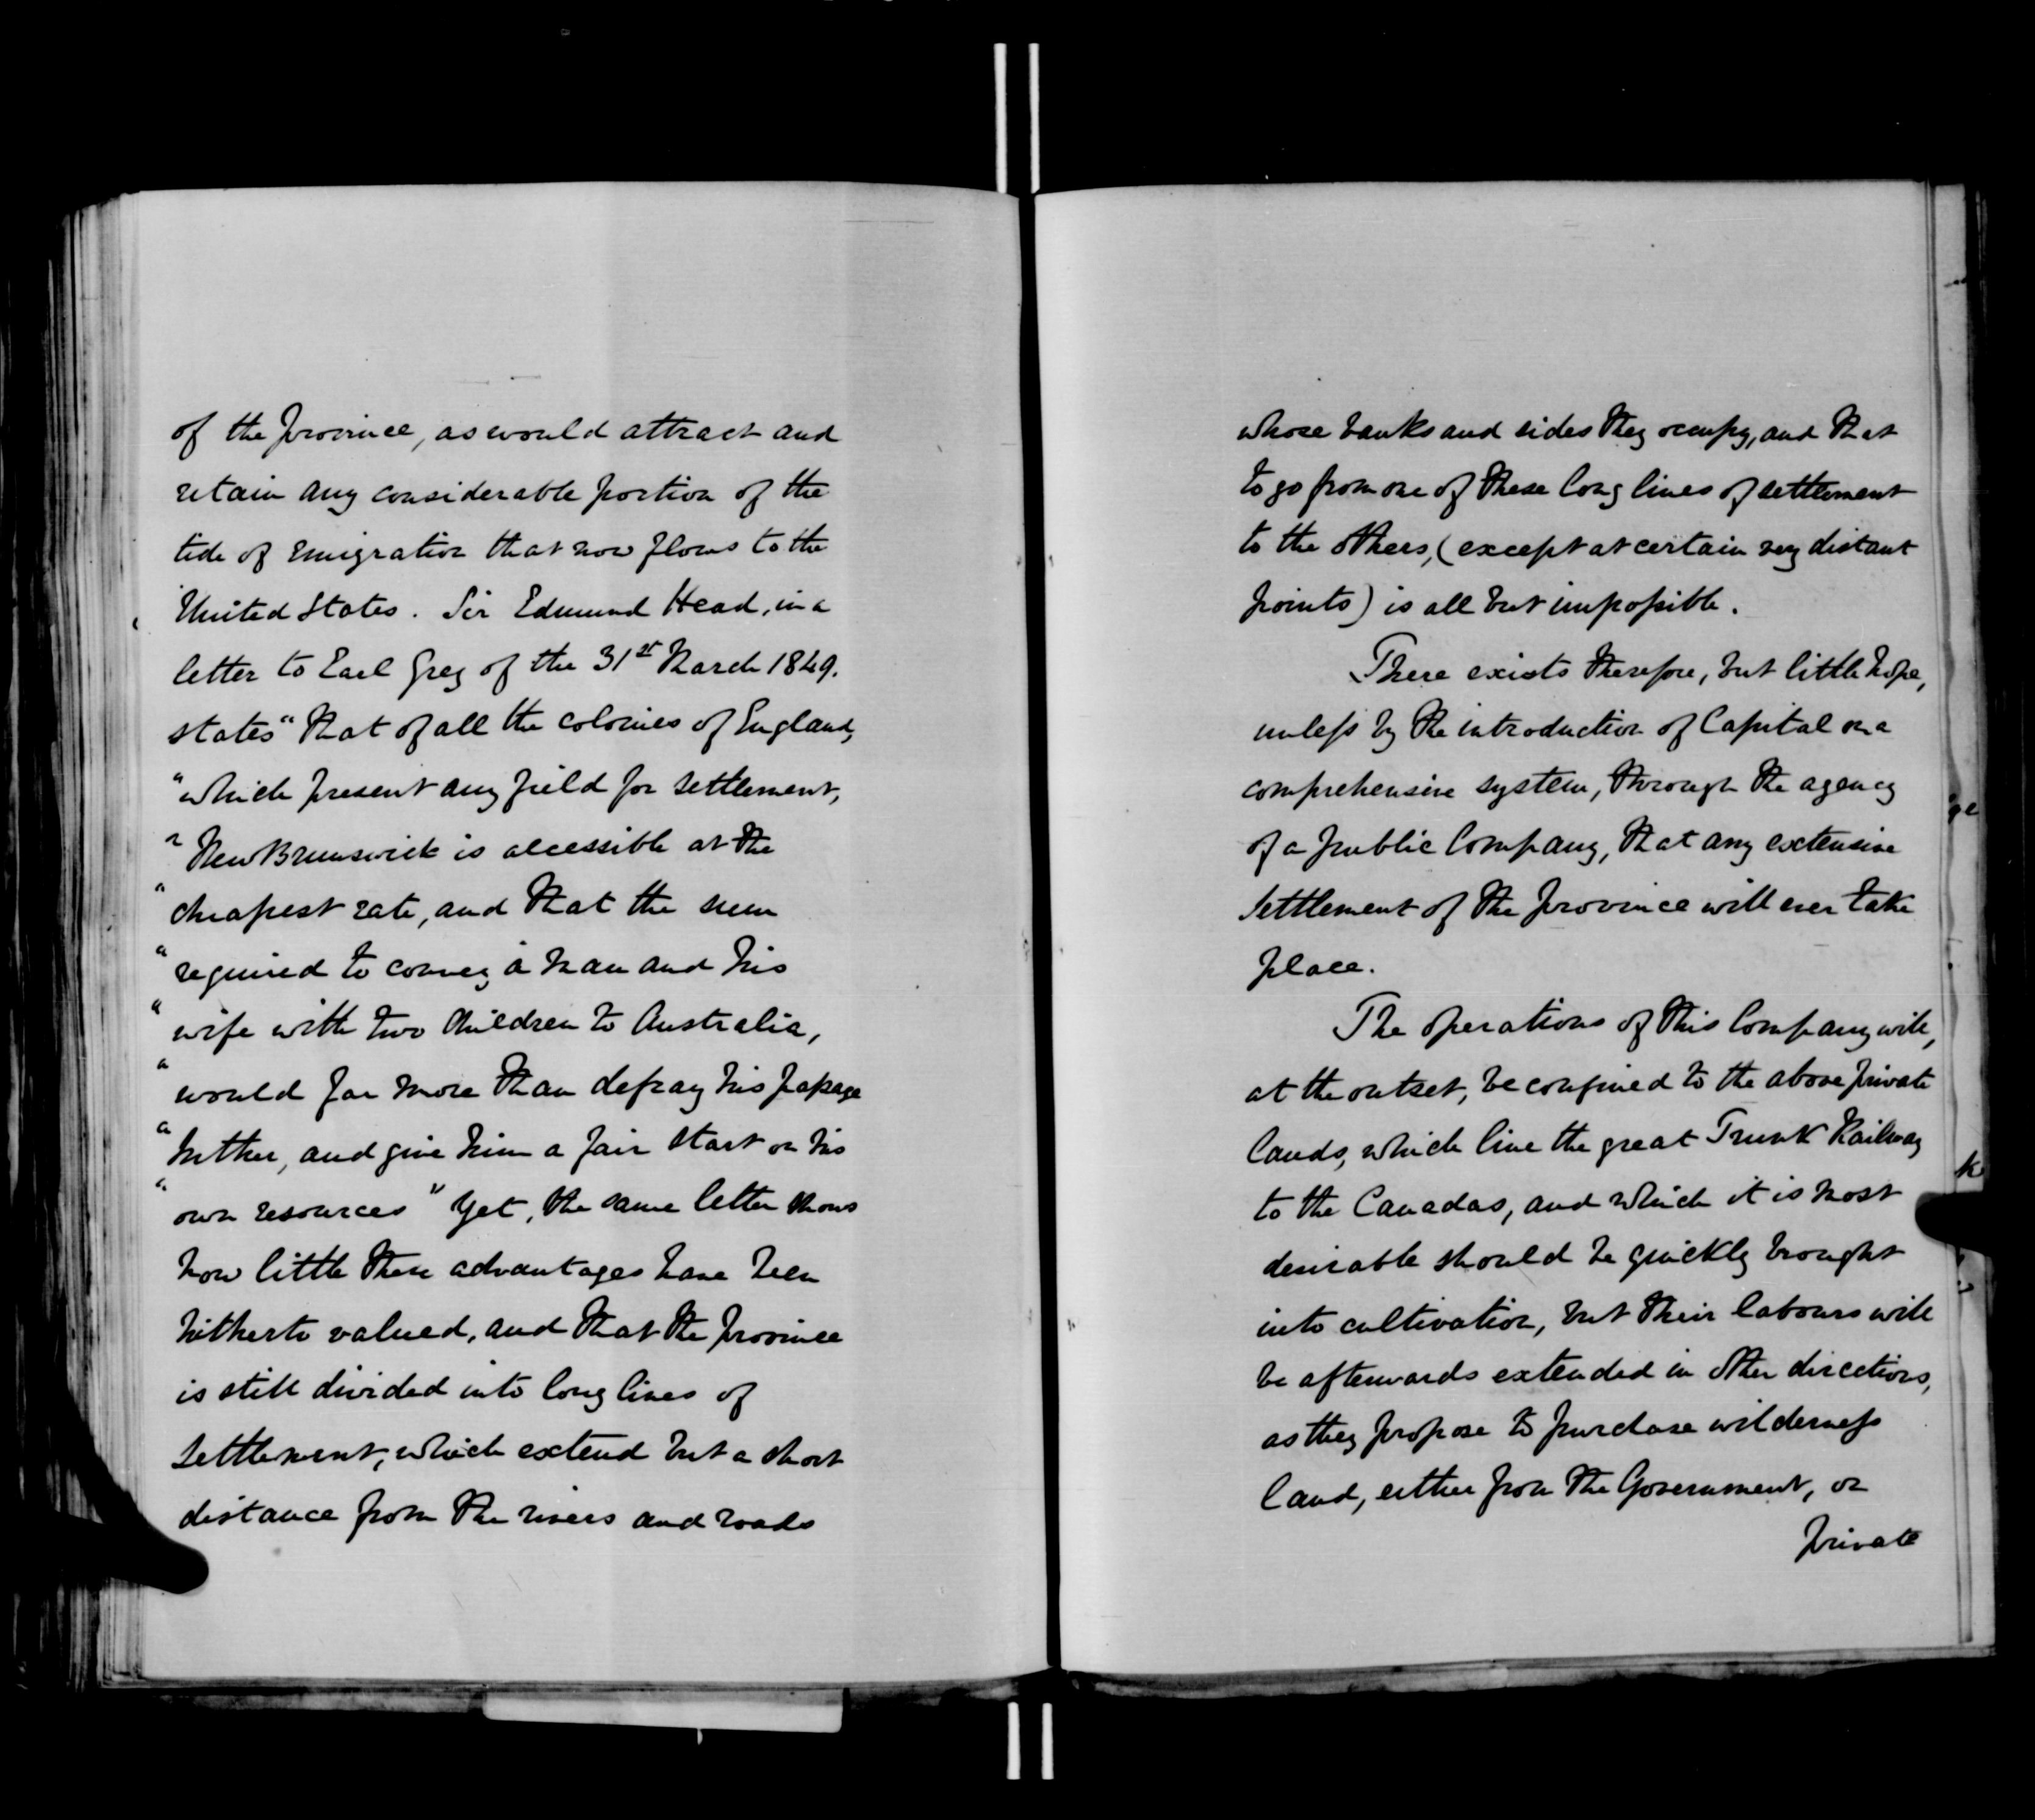 of the province, as would attract and
retain any considerable portion of the
tide of emigration that now flows to the
United States. Sir Edmund Head, in a
letter to Earl Grey of the 31st March 1849.
states "that of all the colonies of England,
"which present any field for settlement,
"New Brunswick is accessible at the
"cheapest rate, and that the sum
"required to convey a man and his
"wife with two children to Australia,
"would far more than defray his passage
"hither, and give him a fair start on his
"own resources" Yet, the same letter shows
how little these advantages have been
hitherto valued, and that the province
is still divided into long lines of
settlement, which extend but a short
distance from the rivers and roads
whose banks and sides they occupy, and that
to go from one of these long lines of settlement
to the others, (except at certain very distant
points) is all but impossible.
There exists therefore, but little hope,
unless by the introduction of Capital on a
comprehensive system, through the agency
of a public Company, that any extensive
settlement of the province will ever take
place.
The operations of this Company will,
at the outset, be confined to the above private
lands, which line the great Trunk Railway
to the Canadas, and which it is most
desirable should be quickly brought
into cultivation, but their labours will
be afterwards extended in other directions,
as they propose to purchase wilderness
land, either from the Government, or
private